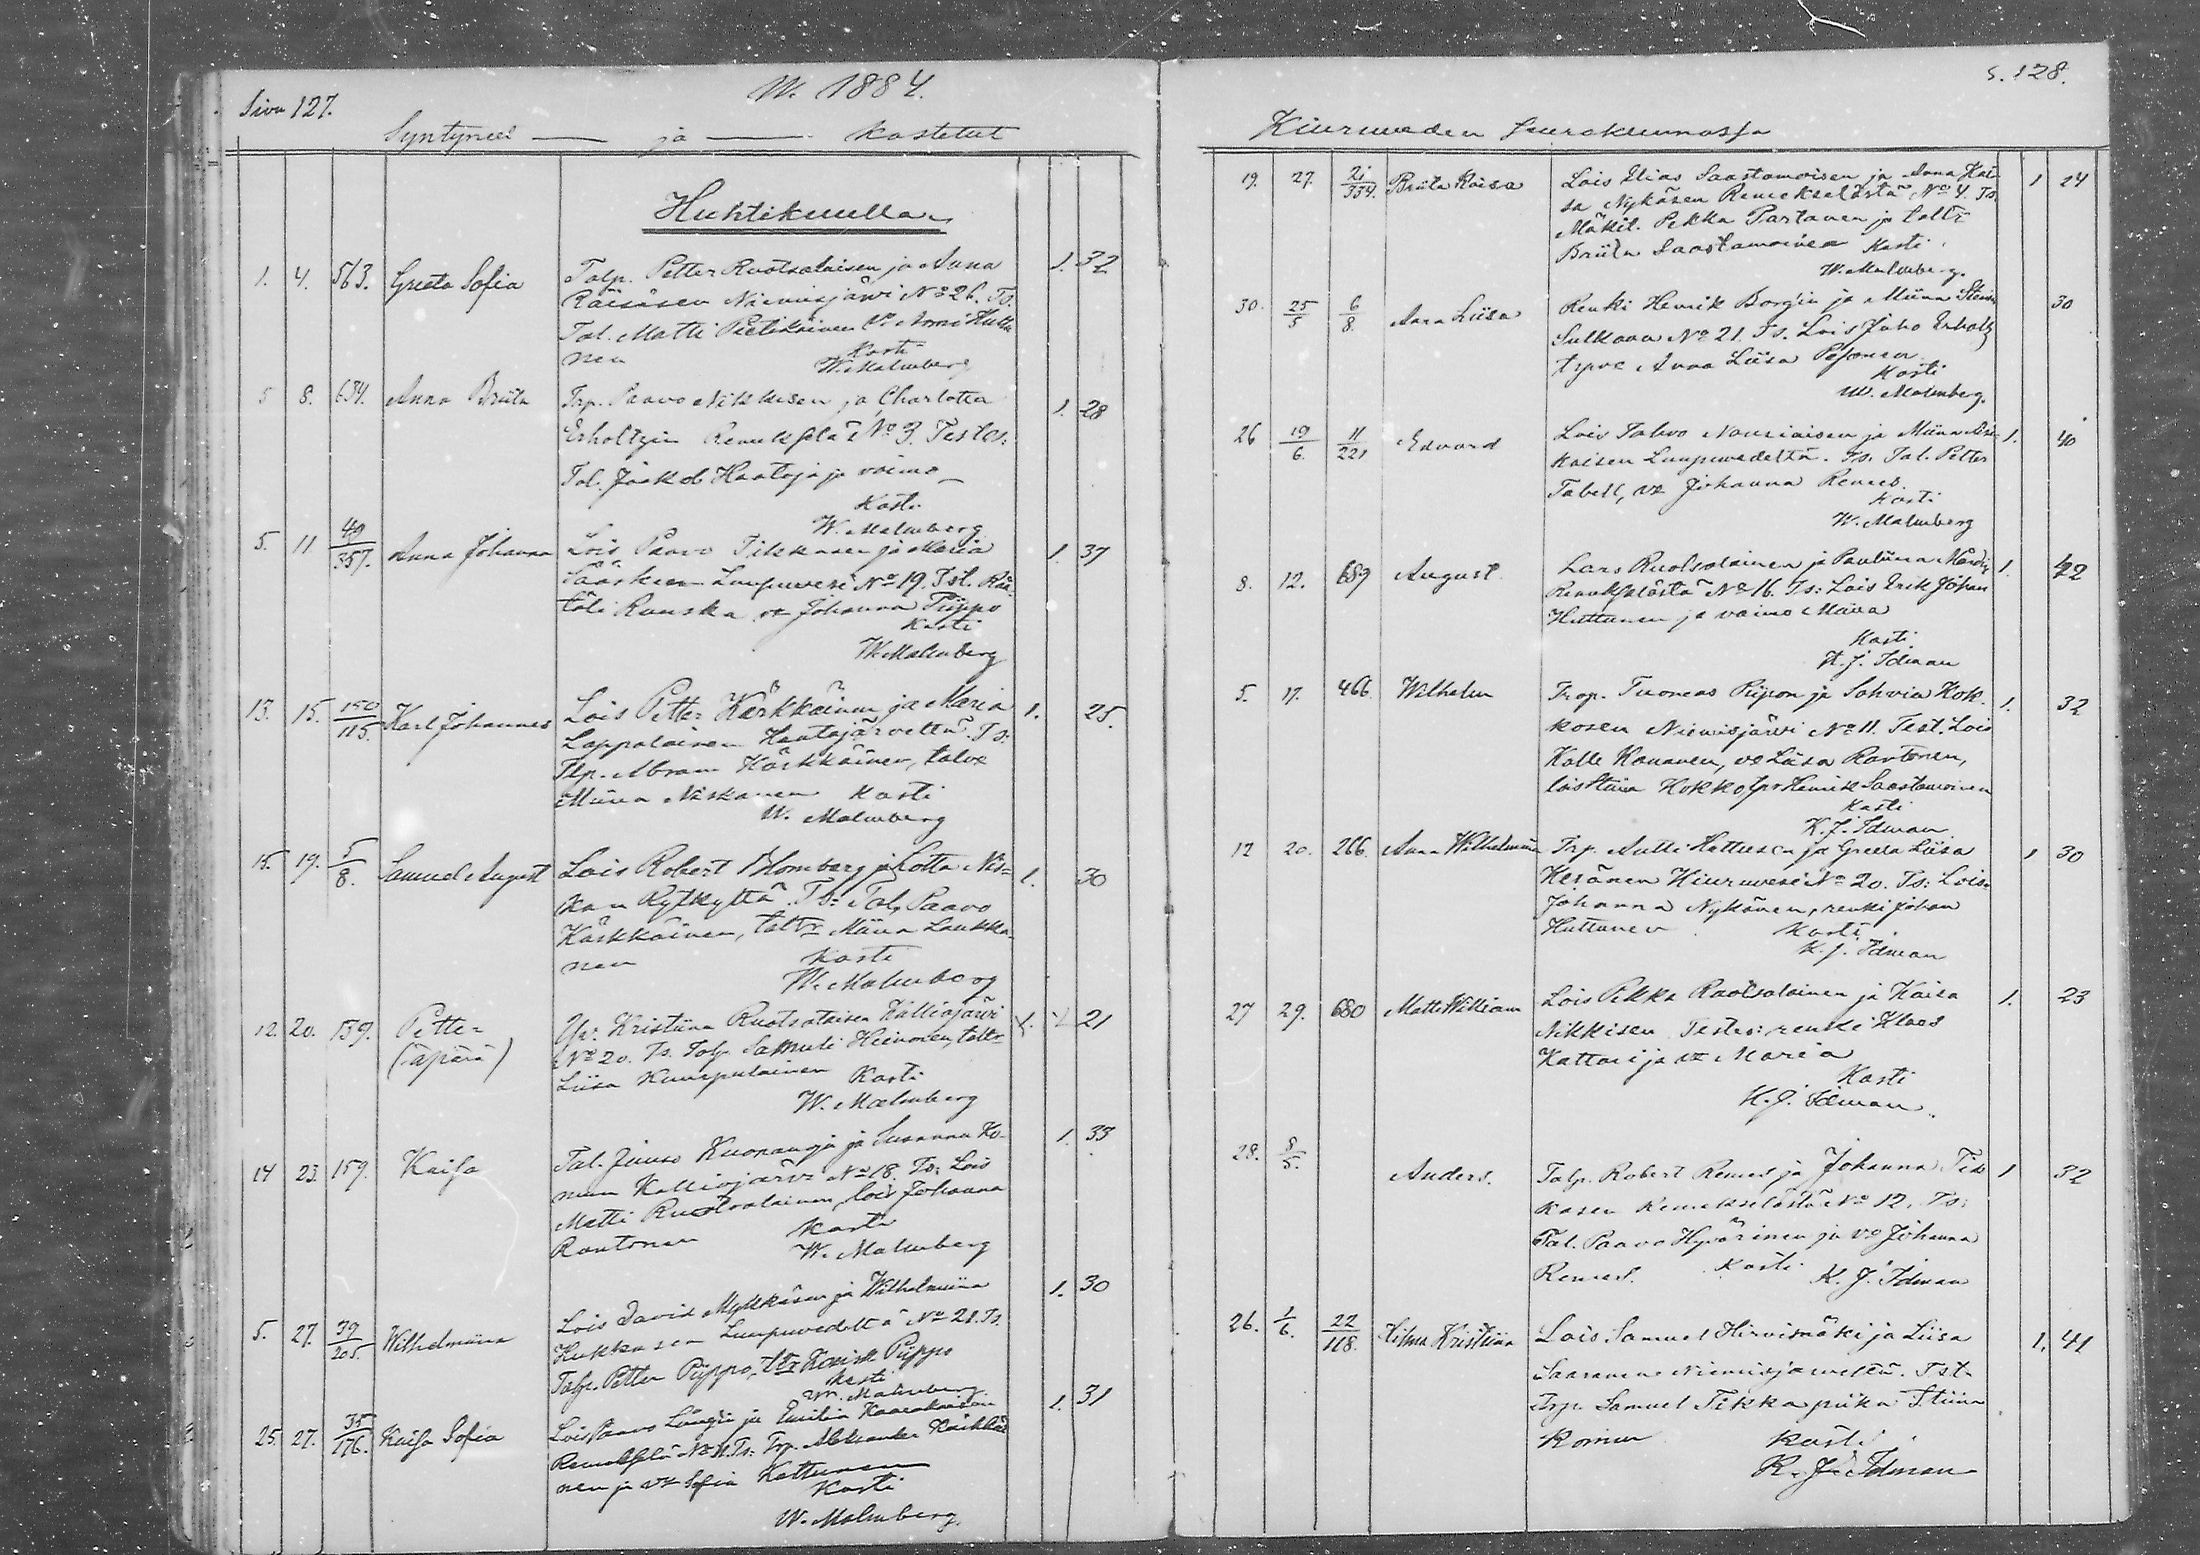 Sivu 127.
W. 1884.
Syntyneet — ja — kastetut
Huhtikuulla.
1. 4. 563. Greeta Sofia Talp. Petter Ruotsalaisen ja Anna 1. 32
Räisäsen Niemisjärvi No 26. Ts.
Tal. Matti Pietikäinen
nen Kasti
W. Malmberg
5 8. 634. Anna Briita Trp. Paavo Nikkisen ja Charlotta 1. 28
Erholtzin No 3. Testes:
Tal. Jaakob Haataja ja vaimo
Kasti
W. Malmberg
5. 11 49/357. Anna Johanna Lois Paavo Tikkasen ja Maria 1. 37
Sääskisen Luupuvesi No 19. Tst. Rää-
täli Ranska, Johanna Piippo
Kasti
W. Malmberg
13. 15. 150/115. Karl Johannes Lois Petter Kärkkäinen ja Maria 1. 25.
Lappalainen Haatajärveltä. Ts:
Tlp. Abram Kärkkäinen, talvo
Miina Niskanen Kasti
W. Malmberg
15. 19. 5/8. Samuel August Lois Robert Blomberg ja Lotta Nis- 1. 30
kan Rytkyltä. Ts: Tal. Paavo
Kärkkäinen, taltr Miina Laukka-
nen Kasti
W. Malmberg
12. 20. 139. Petter Kristiina Ruotsalaisen Kalliojärvi 21
(äpärä) No 20. Ts. Talp. Samuli Hiivonen, taltr
Liisa Kumpulainen Kasti
W. Malmberg
14 23. 159. Kaisa Tal. Juuso ja Susanna Ko- 1. 33
Kalliojärvi No 18. Ts: Lois
Matti Ruotsalainen, lois Johanna
Rautonen Kasti
W. Malmberg
5. 27. 39/205. Wilhelmiina Lois David Mykkäsen ja Wilhelmiina 1. 30
Hukkasen Luupuvedeltä No 21. Ts.
Talp. Petter Piippo, Piippo
Kasti
W. Malmberg
25. 27. 35/176. Kaisa Sofia Lois Paavo ja Emilia 1. 31
Ts: Trp. Aleksander Kärkkäi-
nen ja Sofia Kattunen
Kasti
W. Malmberg.
s. 128.
Kiuruweden seurakunnassa
19. 27. 21/334. Briita Kaisa Lois Elias Saastamoisen ja Anna Kai- 1 24
sa Nykäsen Remekselästä No 4. Ts.
Mäkit. Pekka Partanen ja taltr
Briita Saastamoinen Kasti
W. Malmberg.
30. 25/5 6/8. Anna Liisa Renki Henrik Borgin ja Miina 30
Sulkava No 21. Ts. Lois Juho Erholtz
trpvo Anna Liisa
Kasti
W. Malmberg.
26 19/6. 11/221 Edvard Lois Tahvo Nousiaisen ja Miina 1. 40
kaisen Luupuvedeltä. Ts. Tal. Petter
Tabell, Johanna Remes.
Kasti
W. Malmberg
8. 12. 689 August Lars Ruotsalainen ja Pauliina 1. 42
No 16. Ts: Lois Erik Johan
Huttunen ja vaimo Miina
Kasti
K. J. Idman
5. 17. 466. Wilhelm Trop. Tuomas Piipon ja Sohvia Kok- 1. 32
kosen Niemisjärvi No 11. Test. Lois
Kalle Kananen, vo Liisa Rautonen,
lois Stiina Hokko, tpr Henrik Saastamoinen
Kasti
K. J. Idman
12 20. 266. Anna Wilhelmiina Trp. Antti Hattusen ja Greeta Liisa 1 30
Keränen Kiuruvesi No 20. Ts: Lois
Johanna Nykänen, renki Johan
Huttunen Kasti
K. J. Idman
27 29. 680 Matts William Lois Pekka Ruotsalainen ja Kaisa 1. 23
Nikkisen Testes: renki Klaes
Kattari ja Maria
Kasti
K. J. Idman
28. 8/5. Anders. Talp. Robert Remes ja Johanna Tik 1 32
kasen Remekselästä No 12. Ts:
Tal. Paavo Hyvärinen ja vo Johanna
Remes. Kasti K. J. Idman
26. 1/6. 22/118. Hilma Kristiina Lois Samuel Hirvismäki ja Liisa 1. 41
Saaranen Niemisjärveltä. Tst.
Trp. Samuel Tikka piika Stiina
Kasti
K. J. Idman